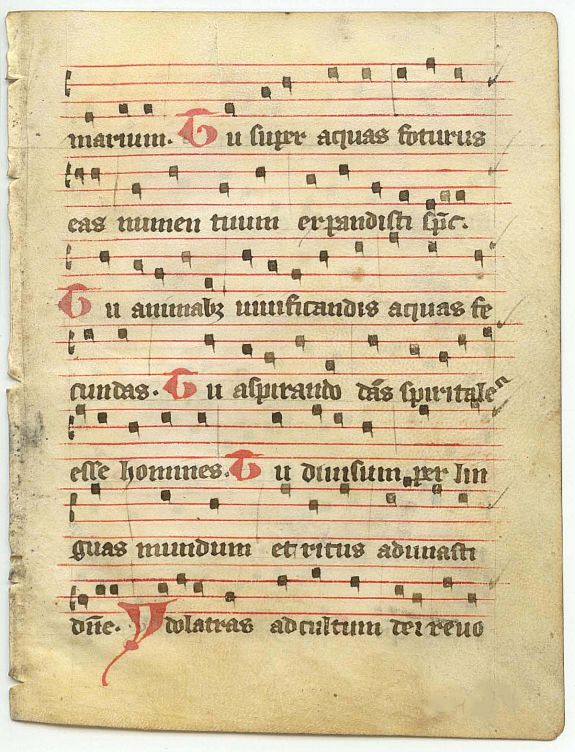 marium. Tu super aquas foturus
eas numen tuum expandisti spc.
Tu animabz uiuificandis aquas fe
cundas. Tu aspirando das spiritales
esse homines. Tu diuisum per lin
guas mundum et ritus adunasti
dne. Ydolatras ad cultum dei reuo